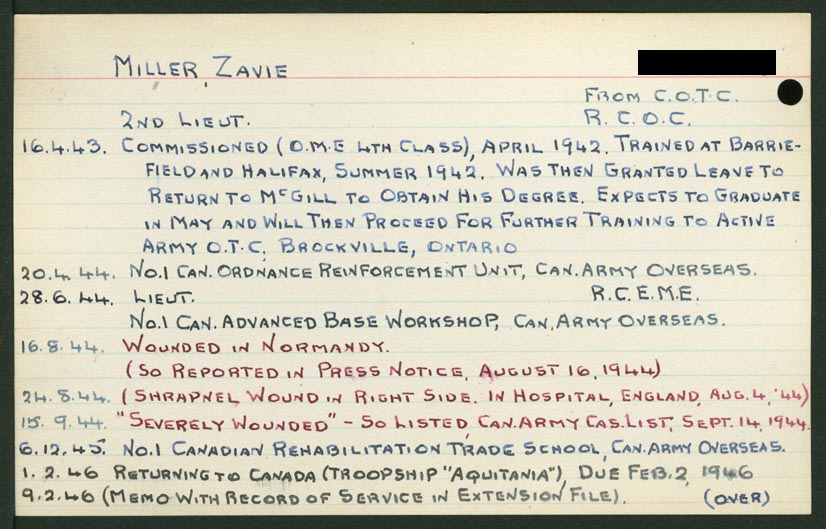 MILLER, ZAVIE
FROM C.O.T.C.
2ND LIEUT. R.C.O.C.
16.4.43. COMMISSIONED (O.M.E 4TH CLASS), APRIL 1942. TRAINED AT BARRIE-
FIELD AND HALIFAX, SUMMER 1942. WAS THEN GRANTED LEAVE TO
RETURN TO MCGILL TO OBTAIN HIS DEGREE. EXPECTS TO GRADUATE
IN MAY AND WILL THEN PROCEED FOR FURTHER TRAINING TO ACTIVE
ARMY O.T.C, BROCKVILLE, ONTARIO
20.4.44. NO.1 CAN. ORDNANCE REINFORCEMENT UNIT, CAN. ARMY OVERSEAS.
28.6.44. LIEUT. R.C.E.M.E.
NO.1 CAN. ADVANCED BASE WORKSHOP, CAN. ARMY OVERSEAS.
16.8.44. WOUNDED IN NORMANDY.
(SO REPORTED IN PRESS NOTICE, AUGUST 16, 1944)
24.8.44. (SHRAPNEL WOUND IN RIGHT SIDE. IN HOSPITAL, ENGLAND, AUG. 4, '44)
15.9.44. "SEVERELY WOUNDED" - SO LISTED, CAN. ARMY CAS. LIST, SEPT. 14, 1944.
6.12.45. NO.1 CANADIAN REHABILITATION TRADE SCHOOL, CAN. ARMY OVERSEAS.
1.2.46 RETURNING TO CANADA (TROOPSHIP "AQUITANIA"), DUE FEB. 2, 1946
9.2.46 (MEMO WITH RECORD OF SERVICE IN EXTENSION FILE). (OVER)